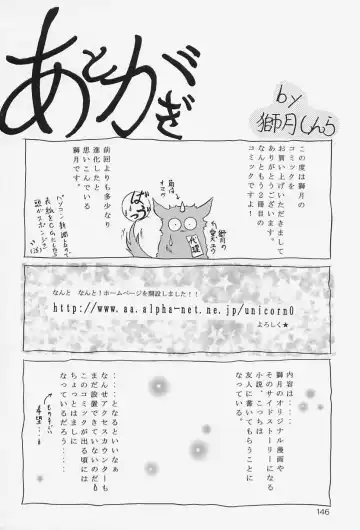 あとがき
by
獅月しんら
この度は獅月の
コミックを
お買い上げいただきまして
ありがとうございます。
なんともう2冊目の
コミックですよ!
前回よりも多少なり
進化したと
思いこんでいる
獅月です。
ばっ
代理
なんと なんと!ホームページを開設しました!!
http://www.aa.alpha-net.ne.jp/unicorn0
よろしく★
内容は・・・・
獅月のオリジナル漫画や
そのサイドストーリーになる
小説、こっちは
友人に書いてもらうことに
なっている。
・・・・となるといいなぁ
なんせアクセスカウンターも
まだ設置できていないのだもの
このコミックが出る頃には
ちょっとはましに
なっているだろう・・・・
146